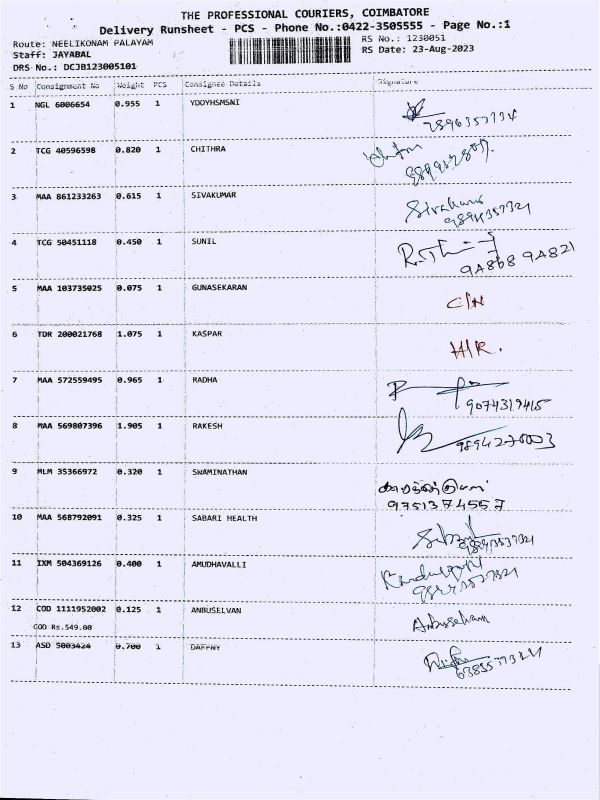 THE PROFESSIONAL COURIERS, COIMBATORE
Delivery Runsheet - PCS - Phone No.:0422-3505555 - Page No.:1
Route: NEELIKONAM PALAYAM RS No.: 1230051
Staff: JAYABAL RS Date: 23-Aug-2023
DRS No.: DCJB123005101
S No Consignment No Weight PCS Consignee Details Signature
1 NGL 6006654 0.955 1 YDOYHSMSNI
2 TCG 40596598 0.820 1 CHITHRA
3 MAA 861233263 0.615 1 SIVAKUMAR
Sivakumar
4 TCG 50451118 0.450 1 SUNIL
5 MAA 103735025 0.075 1 GUNASEKARAN
C/N
6 TDR 200021768 1.075 1 KASPAR
7 MAA 572559495 0.965 1 RADHA
9074319415
8 MAA 569807396 1.905 1 RAKESH
9894270003
9 MLM 35366972 0.320 1 SWAMINATHAN
9751374557
10 MAA 568792091 0.325 1 SABARI HEALTH
11 IXM 504369126 0.400 1 AMUDHAVALLI
12 COD 1111952002 0.125 1 ANBUSELVAN
Anbuselvan
COD Rs.549.00
13 ASD 5003424 0.700 1 DAFFNY